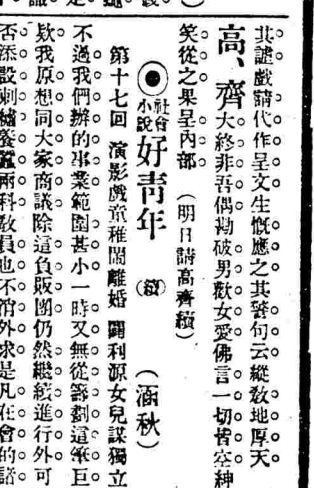 其謔戲請代作呈文生慨應之其警句云縱敎地厚天
高、齊大終非吾偶勘破男歡女愛佛言一切皆空紳
笑從之果呈內部（明日請高齊續）
社會小說 好靑年（續）（涵秋）
第十七回 演影戲童稚鬧離婚 闢利源女兒謀獨立
不過我們辦的事業範圍甚小一時又無從籌劃這筆巨
欵我原想同大家商議除這負販團仍然繼續進行外可
否添設刺繡養蠶兩科敎員也不消外求是凡在會的諸